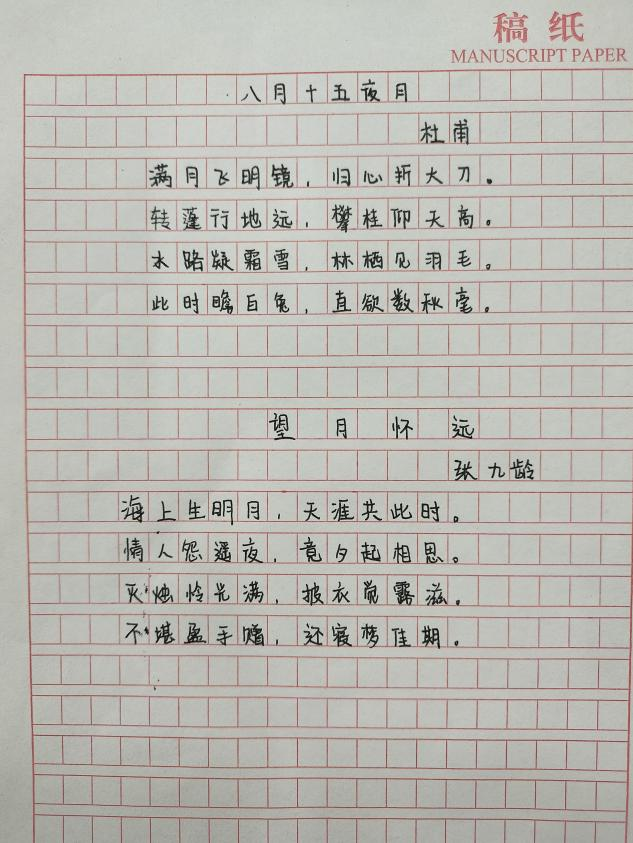 稿纸
MANUSCRIPT PAPER
八月十五夜月
杜甫
满月飞明镜，归心折大刀。
转蓬行地远，攀桂仰天高。
水路疑霜雪，林栖见羽毛。
此时瞻白兔，直欲数秋毫。
望月怀远
张九龄
海上生明月，天涯共此时。
情人怨遥夜，竟夕起相思。
灭烛怜光满，披衣觉露滋。
不堪盈手赠，还寝梦佳期。